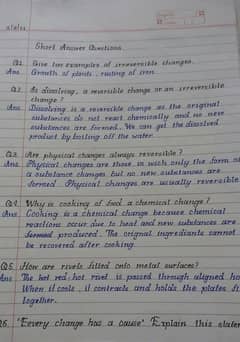 Short Answer Questions
Q1. Give two examples of irreversible changes.
Ans. Growth of plants, rusting of iron.
Q2. Is dissolving, a reversible change or an irreversible
change?
Ans. Dissolving is a reversible change as the original
substances do not react chemically and no new
substances are formed. We can get the dissolved
product by boiling off the water.
Q3. Are physical changes always reversible?
Ans. Physical changes are those in wich only the form of
a substance changes but no new substances are
formed. Physical changes are usually reversible
Q4. Why is cooking of food a chemical change?
Ans. Cooking is a chemical change because chemical
reactions occur due to heat and new substances are
formed produced. The original ingrediants cannot
be recovered after cooking.
Q5. How are rivets fitted onto metal surfaces?
Ans The hot red hot rivet is passed through aligned ho
When it cools, it contracts and holds the plates
together.
Q6. "Eevery change has a cause". Explain this state